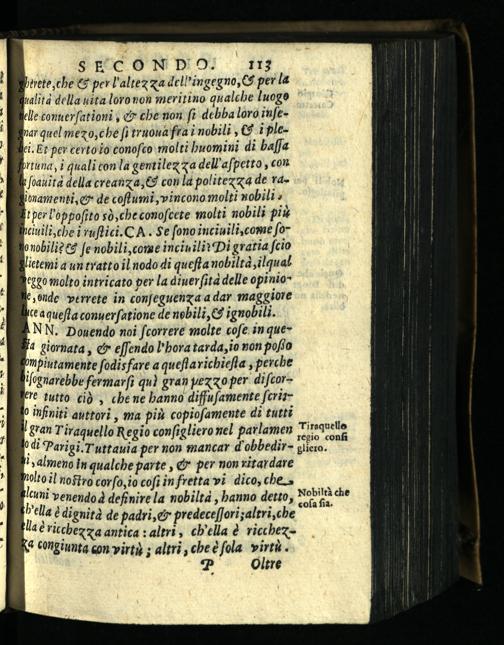 SECONDO. 113
gherete, che & per l'altezza dell'ingegno, & per la
qualità della uita loro non meritino qualche luogo
nelle conuersationi, & che non si debba loro inse-
gnar quel mezo, che si truoua fra i nobili, & i ple-
bei. Et per certo io conosco molti huomini di bassa
fortuna, i quali con la gentilezza dell'aspetto, con
la soauità della creanza, & con la politezza de ra-
gionamenti, & de costumi, vincono molti nobili.
Et per l'opposito sò, che conoscete molti nobili più
inciuili, che i rustici. CA. Se sono inciuili, come so-
no nobili? & se nobili, come inciuili? Di gratia scio
glietemi a un tratto il nodo di questa nobiltà, ilqual
veggo molto intricato per la diuersità delle opinio-
ne, onde verrete in conseguenza a dar maggiore
luce a questa conuersatione de nobili, & ignobili.
ANN. Douendo noi scorrere molte cose in que-
sta giornata, & essendo l'hora tarda, io non posso
compiutamente sodisfare a questa richiesta, perche
bisognarebbe fermarsi quì gran pezzo per discor-
rere tutto ciò, che ne hanno diffusamente scrit-
to infiniti auttori, ma più copiosamente di tutti
il gran Tiraquello Regio consigliero nel parlamen
to di Parigi. Tuttauia per non mancar d'obbedir-
ui, almeno in qualche parte, & per non ritardare
molto il nostro corso, io così in fretta vi dico, che
alcuni venendo à definire la nobiltà, hanno detto,
ch'ella è dignità de padri, & predecessori; altri, che
ella è ricchezza antica: altri, ch'ella è ricchez-
za congiunta con virtù; altri, che è sola virtù.
P Oltre
Tiraquello
regio consi
gliero.
Nobiltà che
cosa sia.